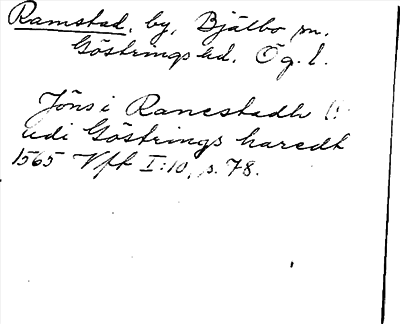 Ramstad, by, Bjälbo sn.
Göstrings hd. Ög. l.
Jöns i Ranestadh (!
udi Göstrings haredt
1565 Vfk I:10, s. 78.